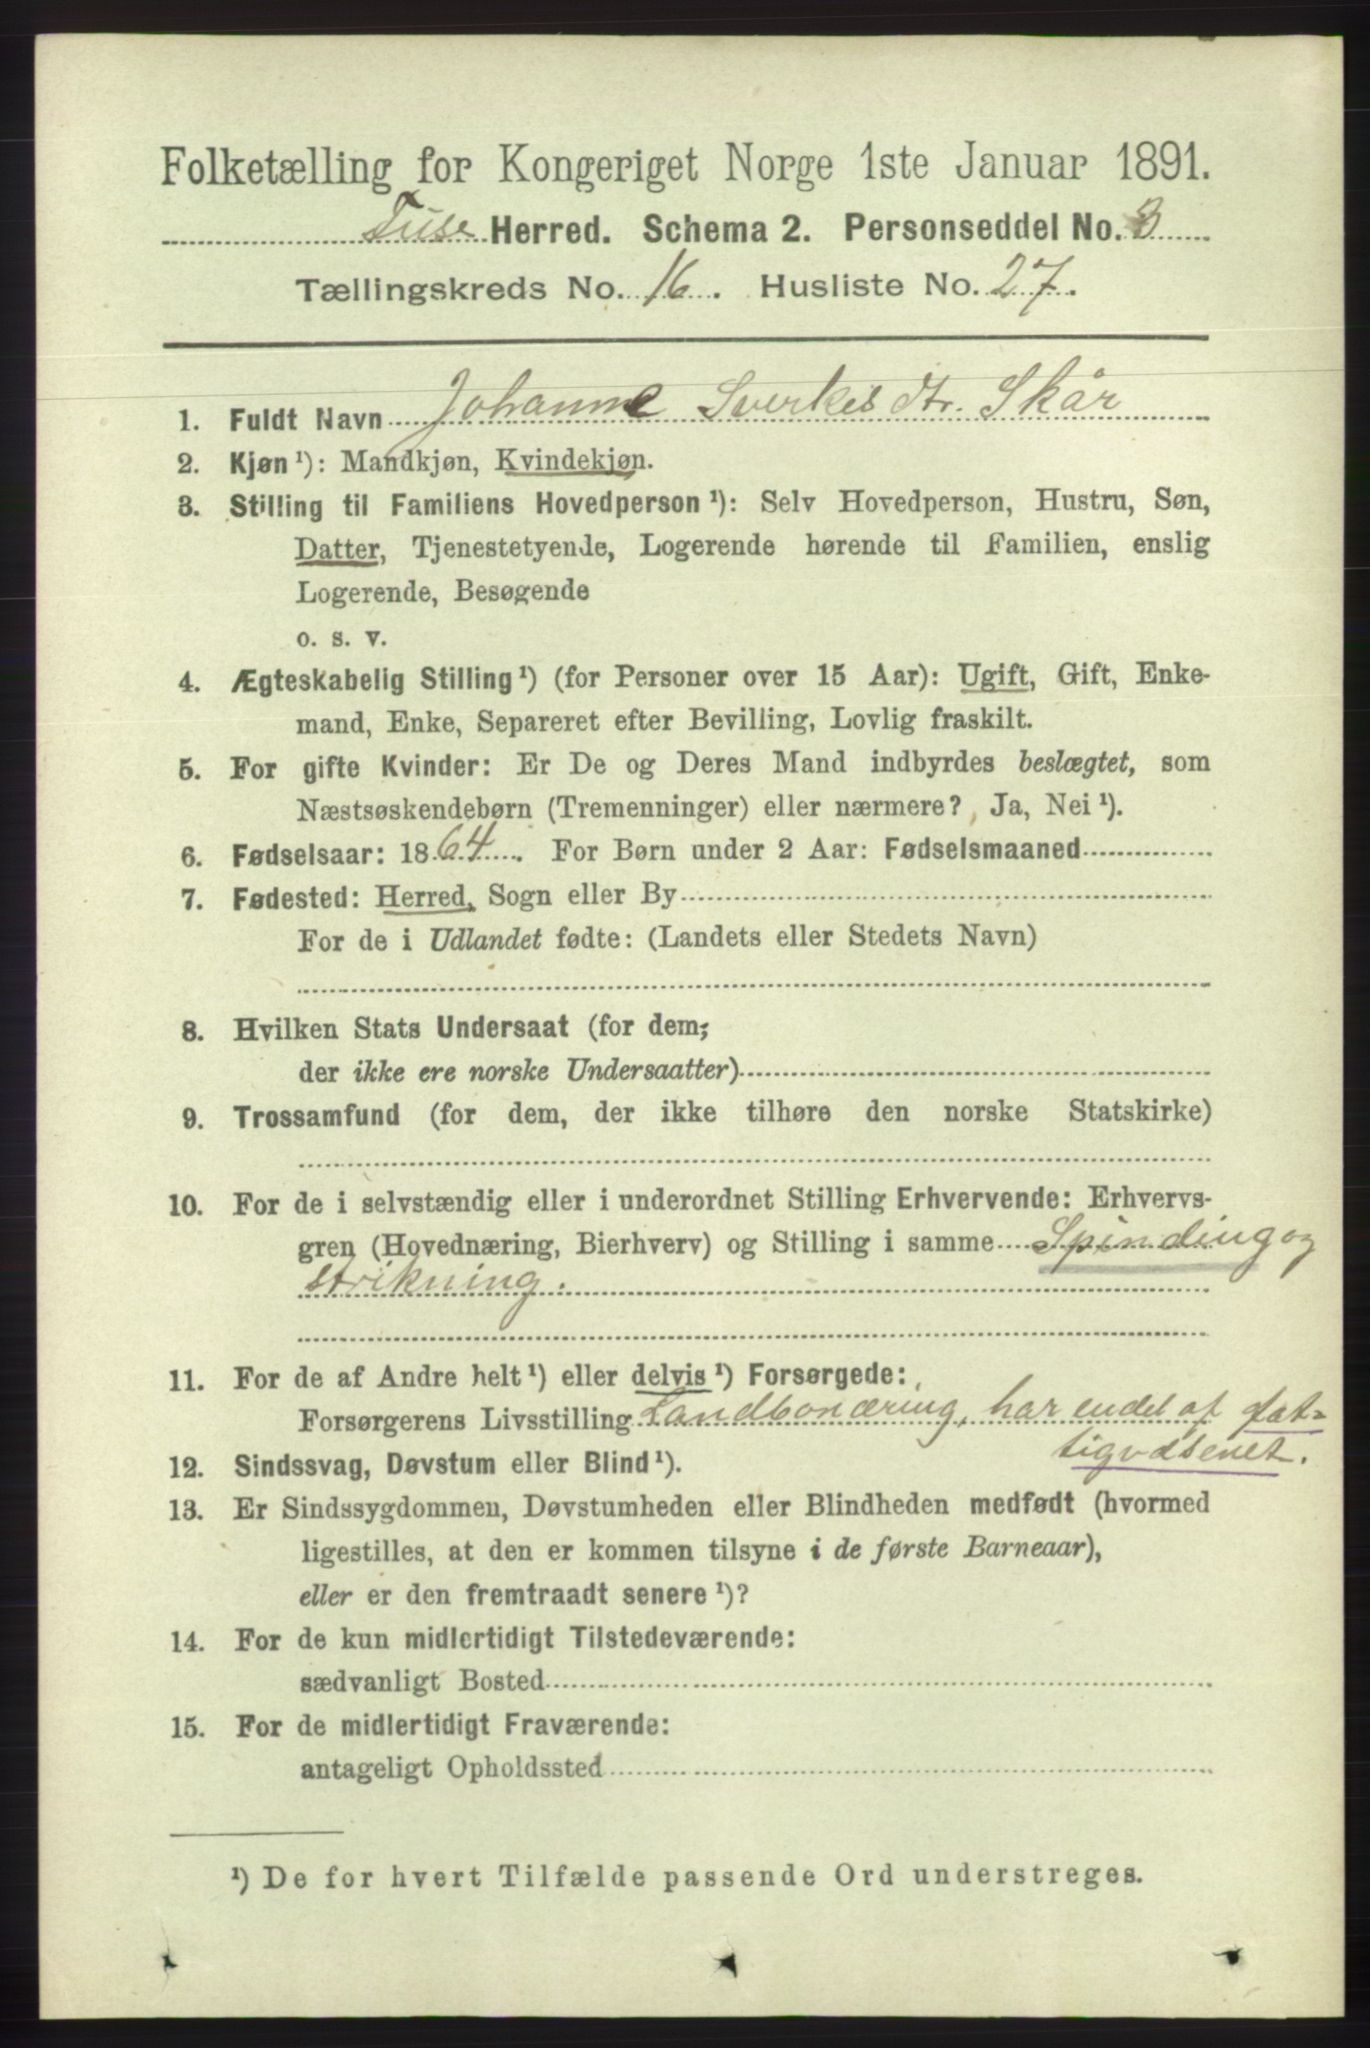 Folketælling for Kongeriget Norge 1ste Januar 1891.
Fuse Herred. Schema 2. Personseddel No. 3
Tællingskreds No. 16. Husliste No. 27.
1. Fuldt Navn Johanne Sverkesdtr. Skår
2. Kjøn ¹): Mandkjøn, Kvindekjøn.
3. Stilling til Familiens Hovedperson ¹): Selv Hovedperson, Hustru, Søn,
Datter, Tjenestetyende, Logerende hørende til Familien, enslig
Logerende, Besøgende
o. s. v.
4. Ægteskabelig Stilling ¹) (for Personer over 15 Aar): Ugift, Gift, Enke-
mand, Enke, Separeret efter Bevilling, Lovlig fraskilt.
5. For gifte Kvinder: Er De og Deres Mand indbyrdes beslægtet, som
Næstsøskendebørn (Tremenninger) eller nærmere? Ja, Nei ¹).
6. Fødselsaar: 1864. For Børn under 2 Aar: Fødselsmaaned
7. Fødested: Herred, Sogn eller By
For de i Udlandet fødte: (Landets eller Stedets Navn)
8. Hvilken Stats Undersaat (for dem,
der ikke ere norske Undersaatter)
9. Trossamfund (for dem, der ikke tilhøre den norske Statskirke)
10. For de i selvstændig eller i underordnet Stilling Erhvervende: Erhvervs-
gren (Hovednæring, Bierhverv) og Stilling i samme Spinding og
strikning.
11. For de af Andre helt ¹) eller delvis ¹) Forsørgede:
Forsørgerens Livsstilling Landbonæring, har endel af fat-
tigvæsenet.
12. Sindssvag, Døvstum eller Blind ¹).
13. Er Sindssygdommen, Døvstumheden eller Blindheden medfødt (hvormed
ligestilles, at den er kommen tilsyne i de første Barneaar),
eller er den fremtraadt senere ¹)?
14. For de kun midlertidigt Tilstedeværende:
sædvanligt Bosted
15. For de midlertidigt Fraværende:
antageligt Opholdssted
¹) De for hvert Tilfælde passende Ord understreges.